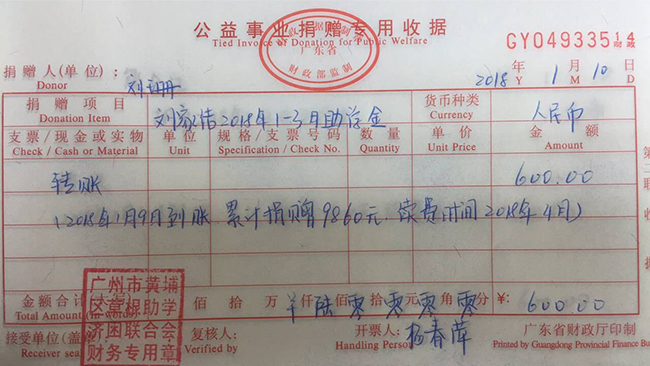 公益事业捐赠专用收据
Tied Invoice of Donation for Public Welfare
广东省
财政部监制
GY04933514
财政
捐赠人(单位): 刘珊珊 2018年1月10日
Donor Y M D
捐赠项目 刘家浩2018年1-3月助学金 货币种类 人民币
Donation Item Currency
支票/现金或实物 单位 规格/支票号码 数量 单价 金额
Check / Cash or Material Unit Specification / Check No. Quantity Unit Price Amount
转账 600.00
(2018年1月9日到账 累计捐赠9860元. 续费时间2018年4月)
金额合计 佰拾万¥仟陆佰零拾零元零角零分 ¥: 600.00
Total Amount
接受单位(盖章): 复核人: 开票人: 杨春萍 广东省财政厅印制
Receiver seal Verified by Handling Person Printed by Guangdong Provincial Finance Ba
广州市黄埔
区言根助学
济困联合会
财务专用章
第二联
收